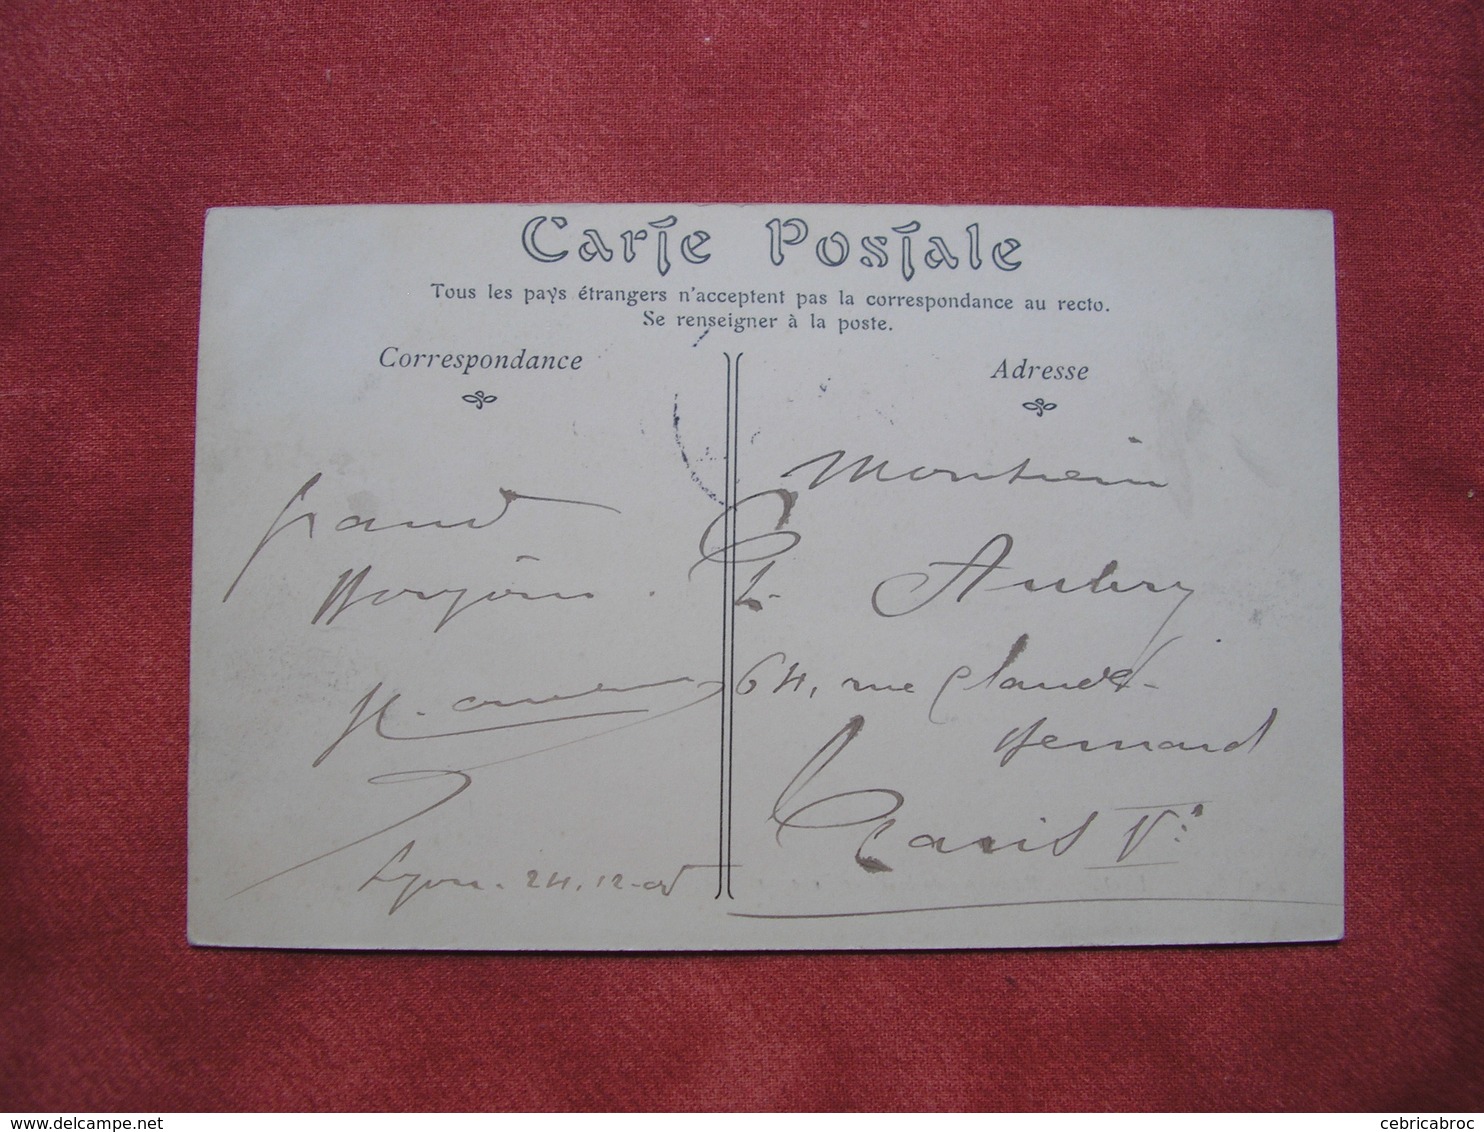 Carte Postale
Tous les pays étrangers n'acceptent pas la correspondance au recto.
Se renseigner à la poste.
Correspondance
Grand
Bonjour.
Lyon. 24.12-05
Adresse
Monsieur
Aubry
64, rue Claude-
Bernard
Paris Ve
delcampe.net
cebricabroc